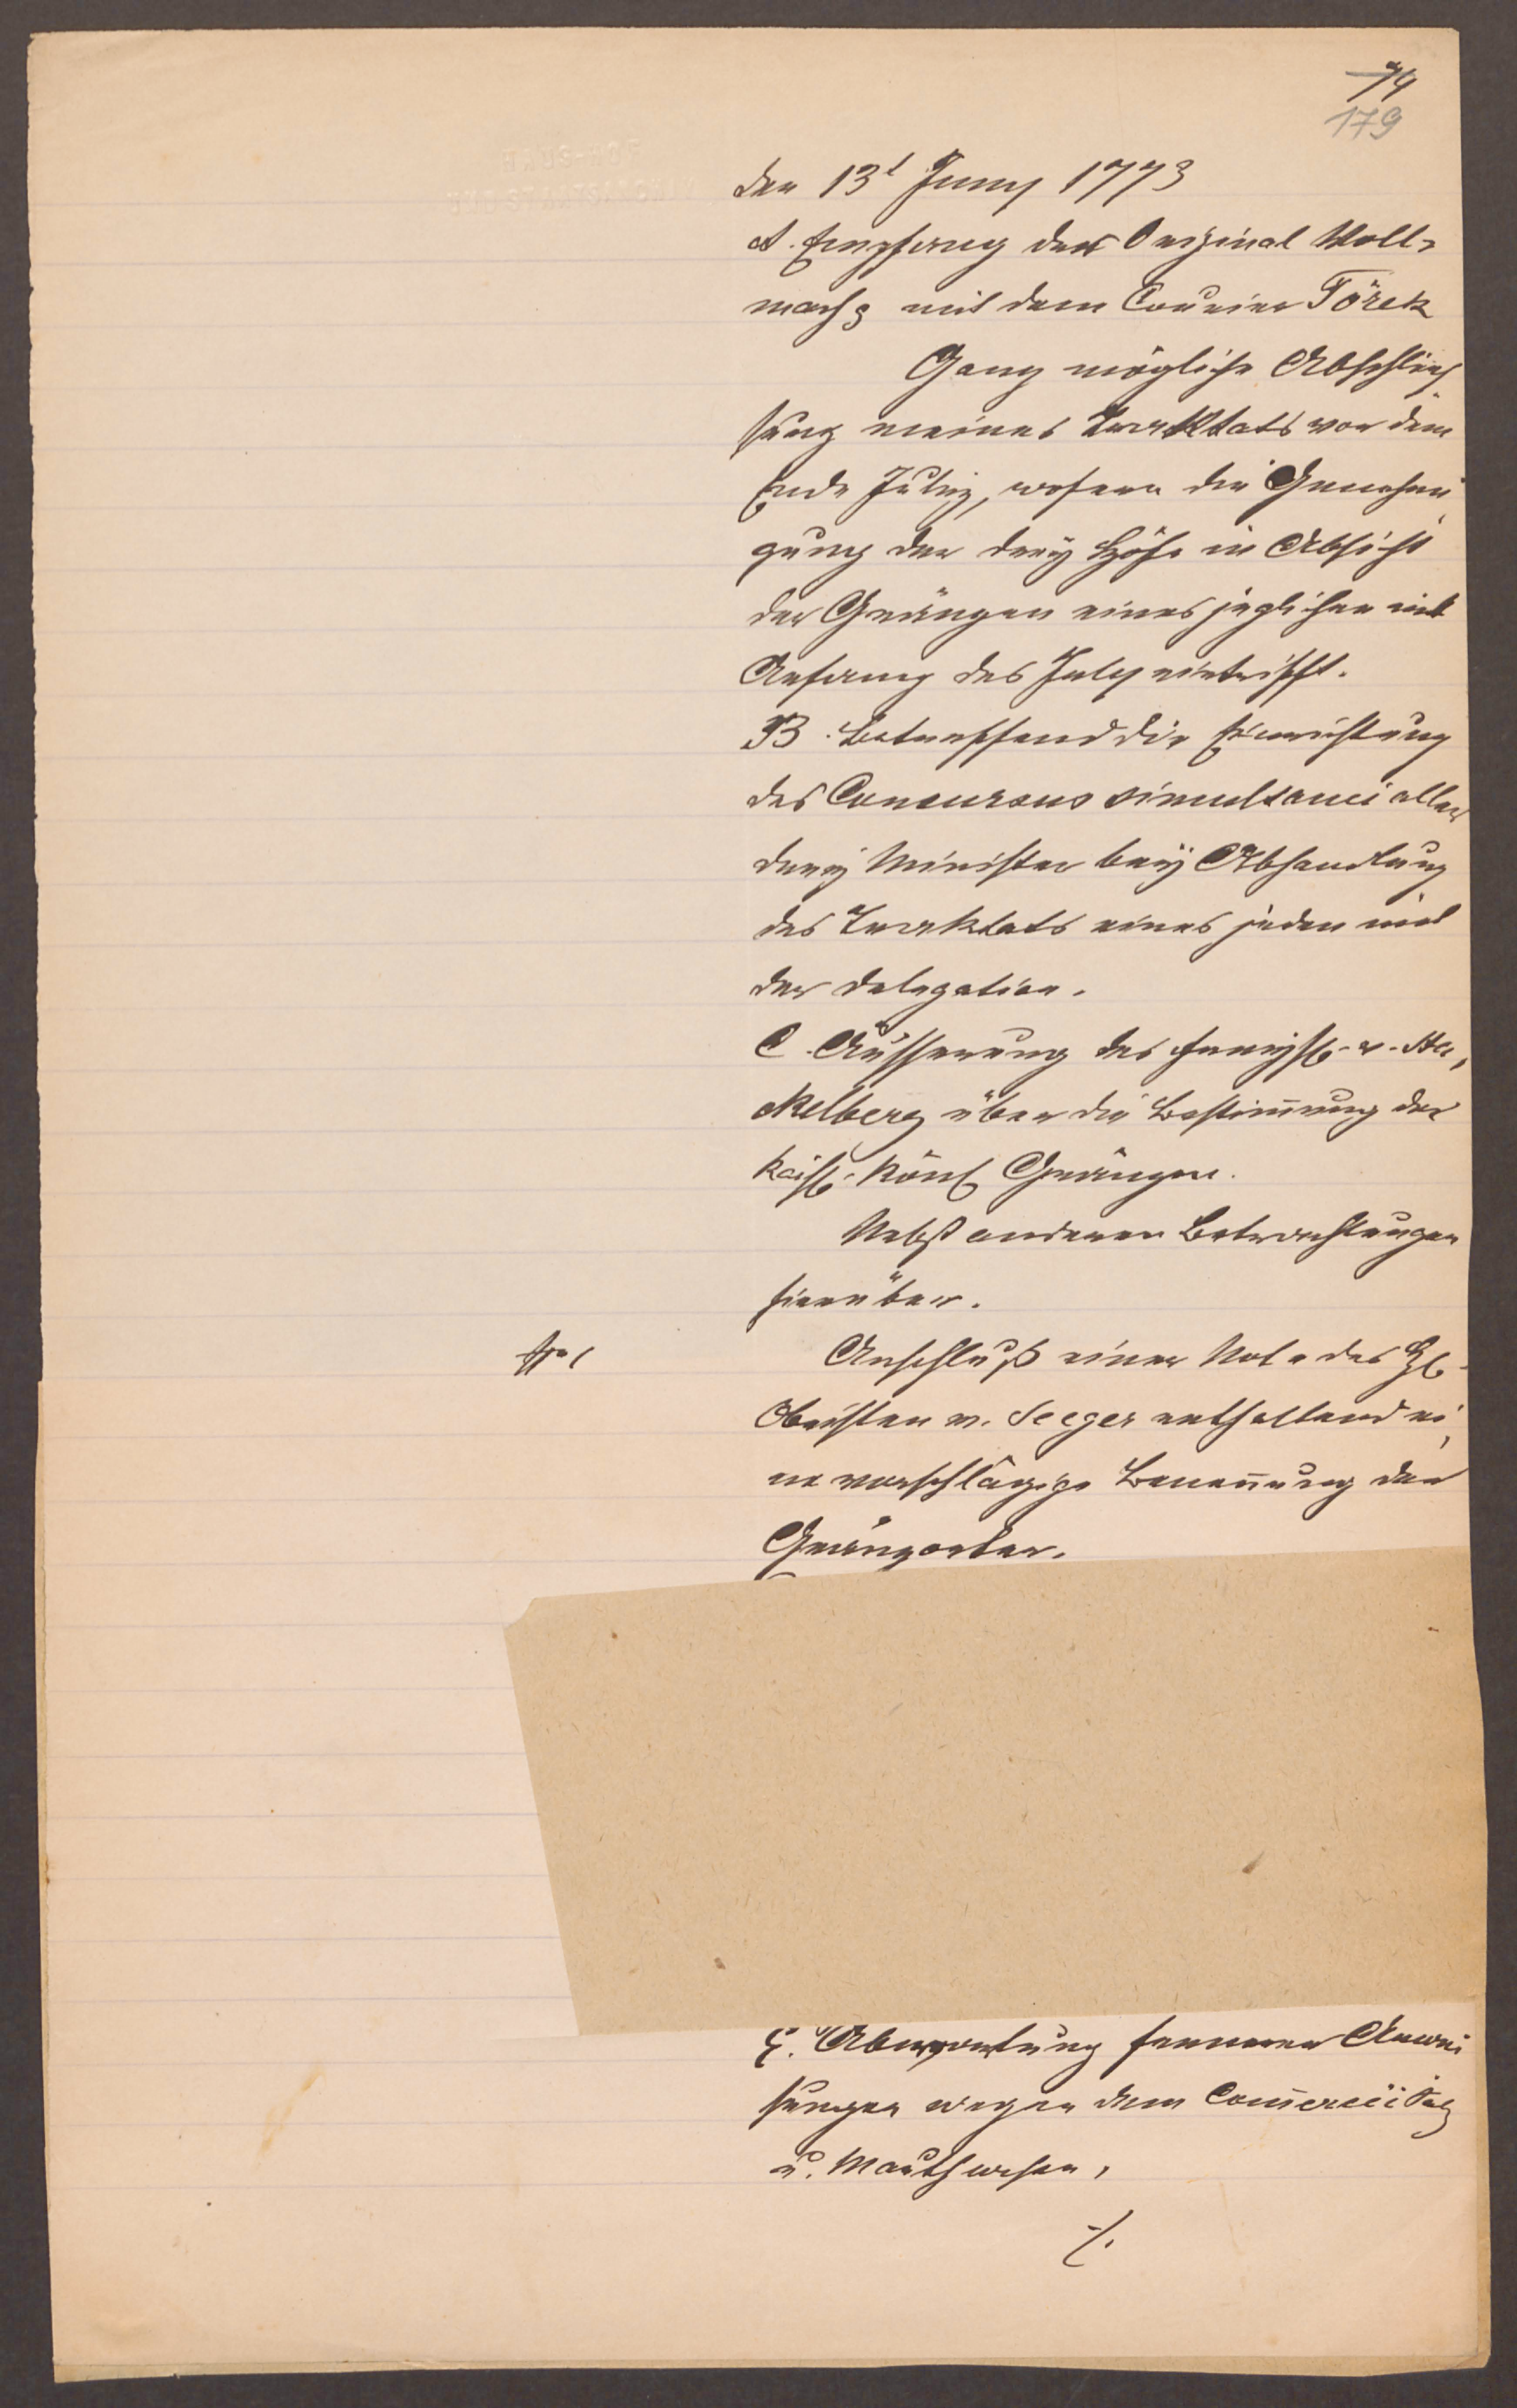 74
179
den 13t Juny 1773
A. Empfang der Original Voll-
macht mit dem Courier Török
Ganz mögliche Abschlies-
sung meines Tracktats vor dem
Ende July, wofern die Genehmi-
gung der drey Höfe in Absicht
der Gränzen eines jeglichen mit
Anfang des July eintrifft.
B. Betreffend die Einrichtung
des Concursus simultanei aller
drey Minister bey Abhandlung
des Tracktats eines jeden mit
der Delegation.
C. Äusserung des Freyh. v. Sta-
ckelberg über die Bestimmung der
kais. Kön. Gränzen.
Nebst anderen Betrachtungen
hierüber.
Anschluß einer Note des H.
Obristen v. Seeger enthaltend ei-
ne vorschlägige Benennung der
Gränzorter.
E. Abwartung fernerer Anwei-
sungen wegen dem Comercii Salz
u. Mauthwesen,
./.